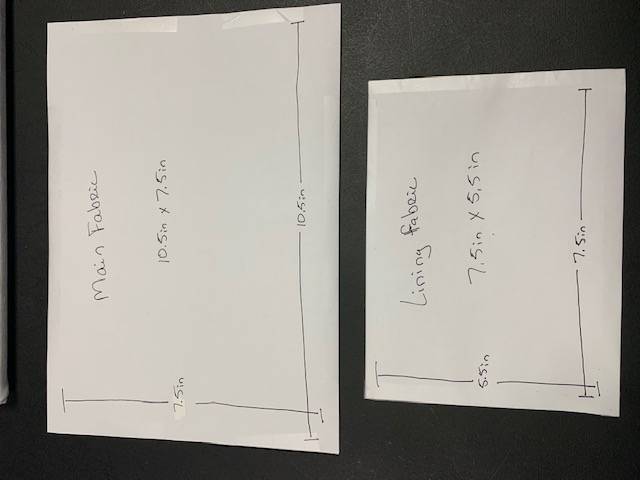 Main Fabric
10.5in x 7.5in
10.5in
7.5in
Lining fabric
7.5in X 5.5in
7.5in
5.5in